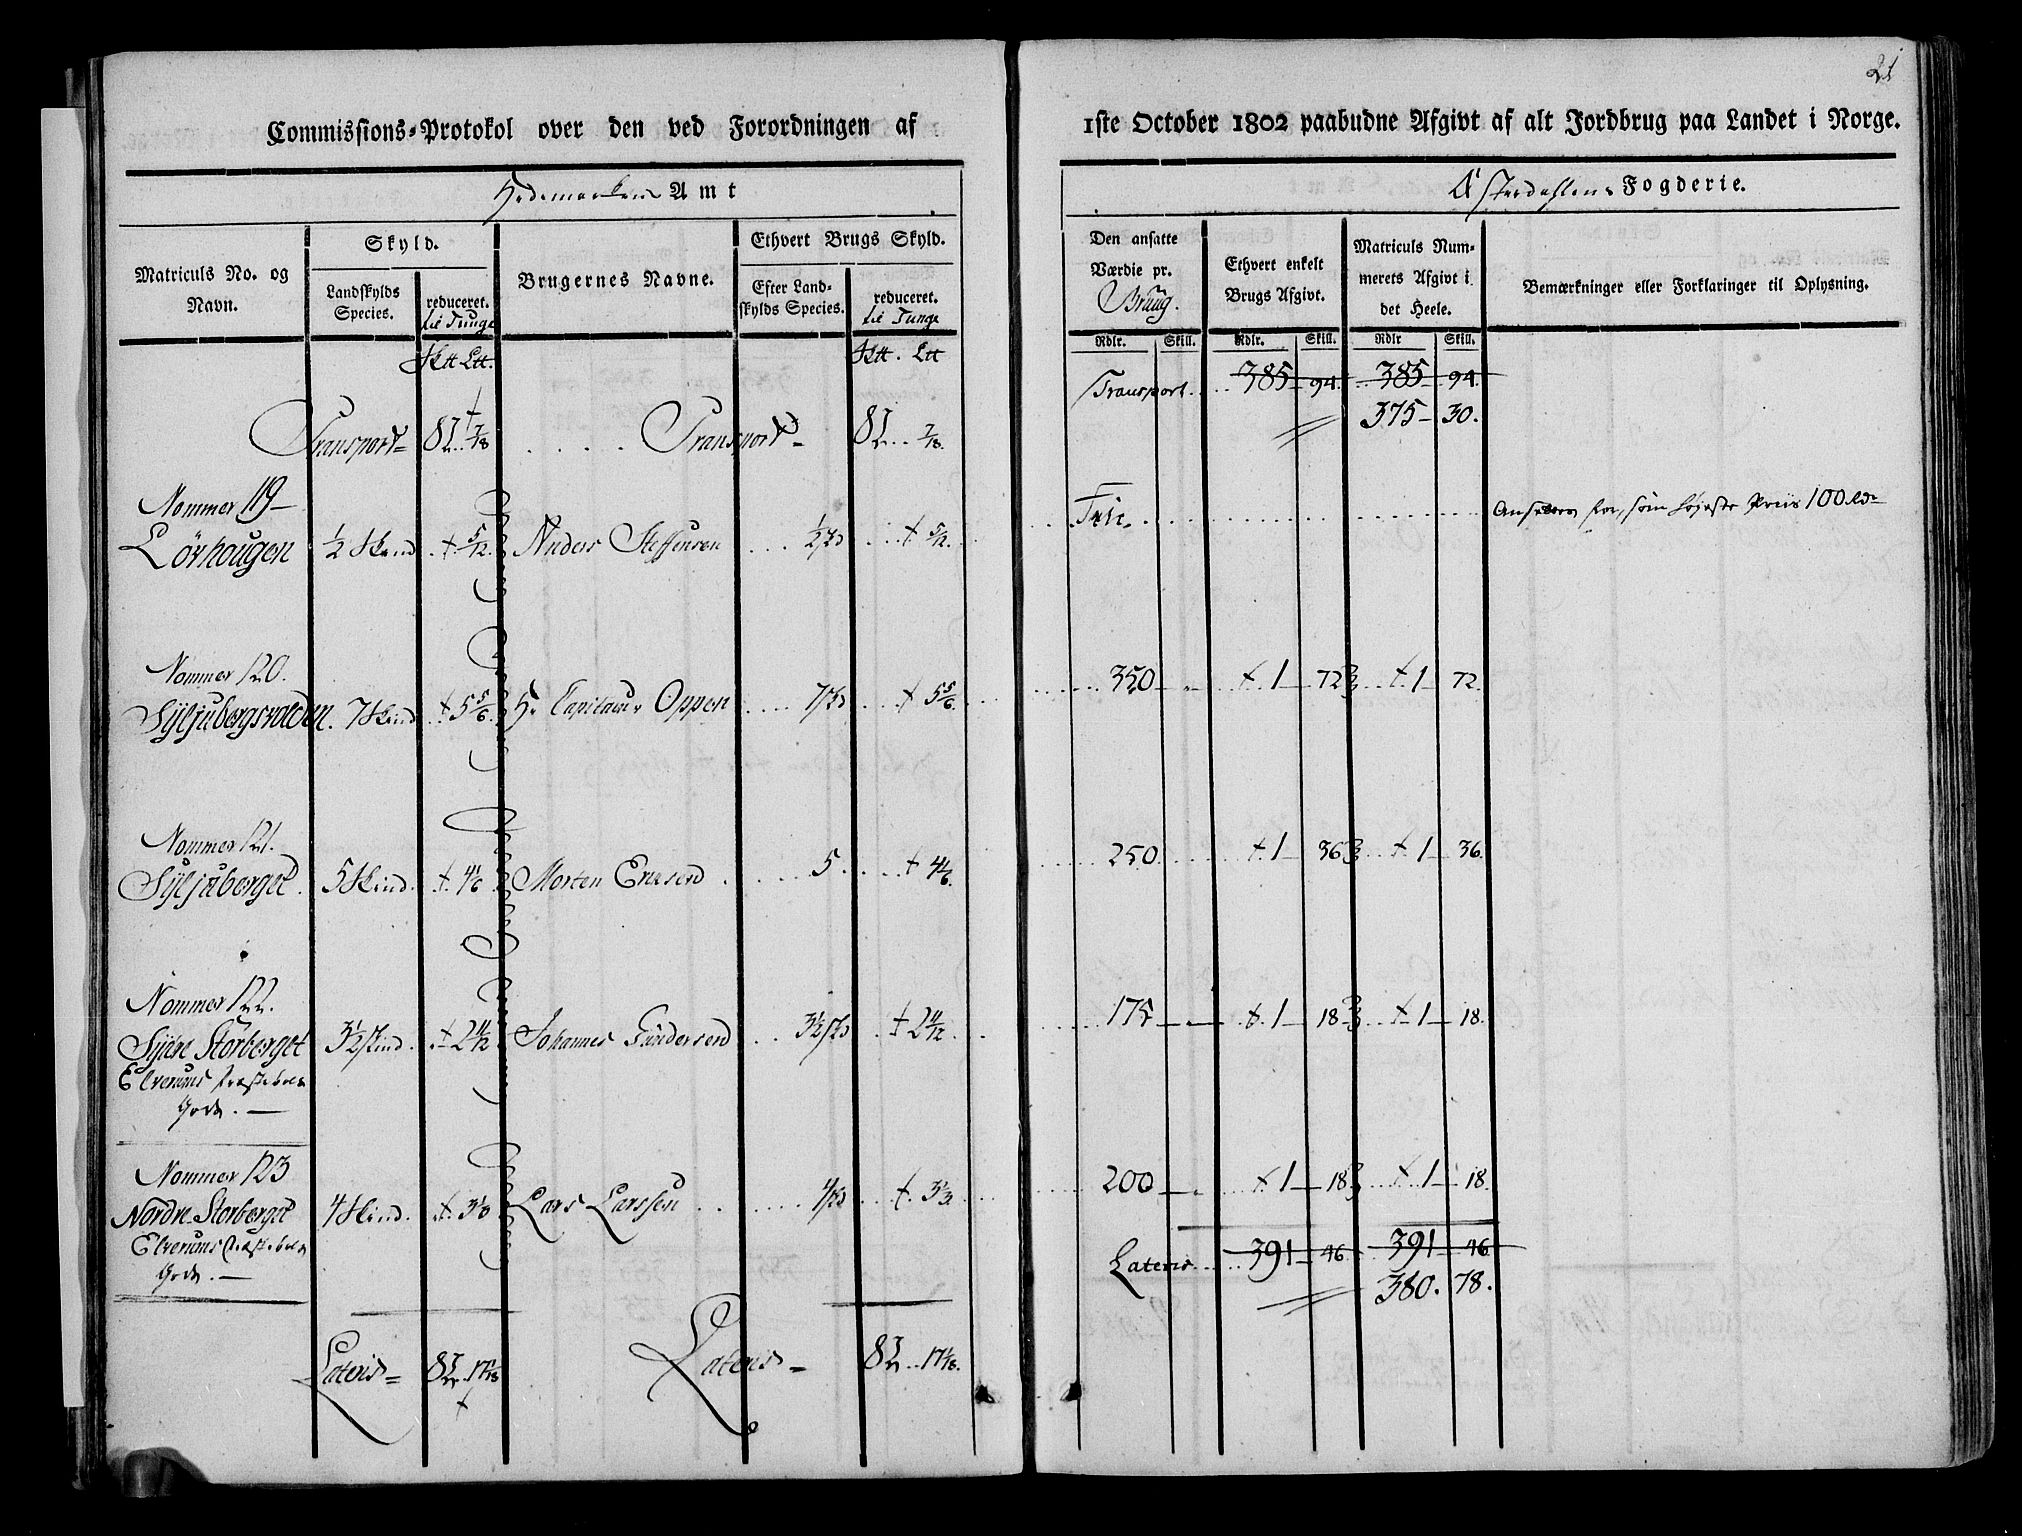 21
Commissions-Protokol over den ved Forordningen af
1ste October 1802 paabudne Afgivt af alt Jordbrug paa Landet i Norge.
Hedemarkens Amt
Østerdahlens Fogderie.
Matriculs No. og Navn.
Skyld.
Landskylds Species.
reduceret. til Tunge
Brugernes Navne.
Ethvert Brugs Skyld.
Efter Landskylds Species.
reduceret. til Tunge
Den ansatte Værdie pr. Brug.
Ethvert enkelt Brugs Afgivt.
Matriculs Nummerets Afgivt i det Heele.
Bemærkninger eller Forklaringer til Oplysning.
Rdlr. Skill. Rdlr. Skill. Rdlr Skill.
Transport 385 94. 385 94.
375 30.
Transport 7/18 Transport 7/18
Nommer 119
Lörhougen ½ Skind 5/12 Anders Steffensen ½ 5/12 Frie 100
Nommer 120.
Syljubergsvolden. 7 Skind 5 5/6 Hr Capitain Oppen 7 5 5/6 350 1 72 1 72.
Nommer 121.
Syljuberget. 5 Skind. 4 1/6 Morten Ericsen 5 4 1/6 250 1 36 1 36.
Nommer 122.
Sydre Storberget 3½ Skind. 2 11/12 Johannes Gundersen 3½ 2 11/12 175 1 18 1 18.
Elverums Præstebols
Gods.
Nommer 123
Nordre Storberget 4 Skind. 3 1/3 Lars Larssen 4 3 1/3 200 1 18 1 18.
Elverums Præstebols
Gods.
Lateris 391 46. 391 46
380. 78.
Lateris 17 1/18 Lateris 17 1/18.